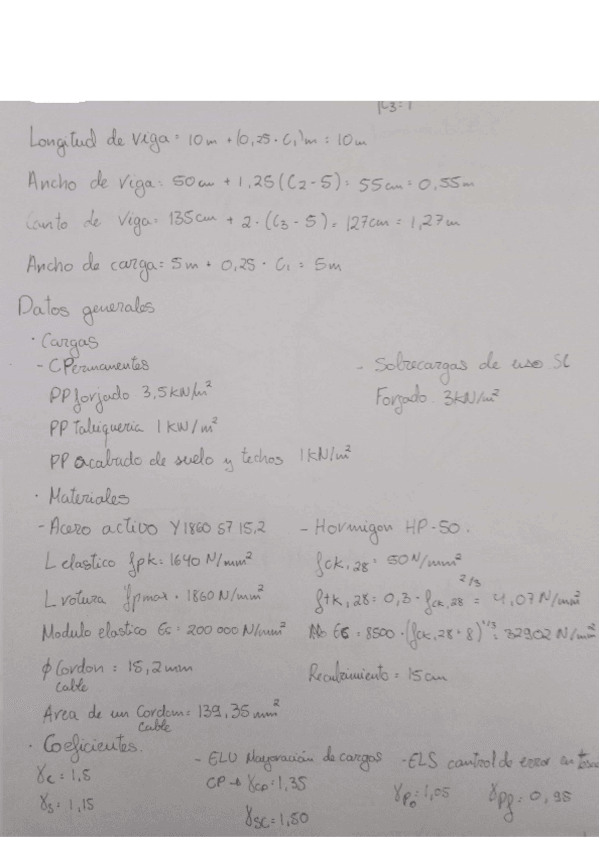 C3=1
Longitud de viga = 10m + (0,25 · C1)m = 10m
Ancho de viga: 50cm + 1,25(C2-5) = 55cm = 0,55m
Canto de viga = 135cm + 2·(C3-5) = 127cm = 1,27m
Ancho de carga = 5m + 0,25 · C1 = 5m
Datos generales
· Cargas
- CPermanentes
PP forjado 3,5kN/m²
PP tabiqueria 1kN/m²
PP acabado de suelo y techos 1kN/m²
- Sobrecargas de uso SC
Forjado. 3kN/m²
· Materiales
- Acero activo Y1860 S7 15,2
L elastico fpk = 1640 N/mm²
L rotura fpmax = 1860 N/mm²
Modulo elastico Es = 200 000 N/mm²
ϕ Cordon = 15,2mm
cable
Area de un Cordon = 139,35mm²
cable
- Hormigon HP-50.
fck,28 = 50N/mm²
ftk,28 = 0,3·fck,28^2/3 = 4,07N/mm²
= 8500·(fck,28+8)^1/3 = 32902 N/mm²
Recubrimiento = 15cm
· Coeficientes.
γc = 1,5
γs = 1,15
- ELU Mayoración de cargas
CP → γcp = 1,35
γsc = 1,50
- ELS control de error en
γp0 = 1,05 γpf = 0,95